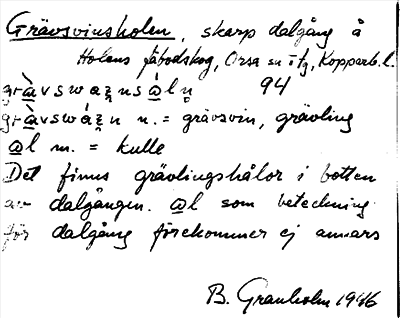 Grävsvinsholen, skarp dalgång å
Holens fäbodskog, Orsa sn i fg, Kopparb. l.
94
n. = grävsvin, grävling
m. = kulle
Det finns grävlingshålor i botten
av dalgången. som beteckning
för dalgång förekommer ej annars
B. Granholm 1946